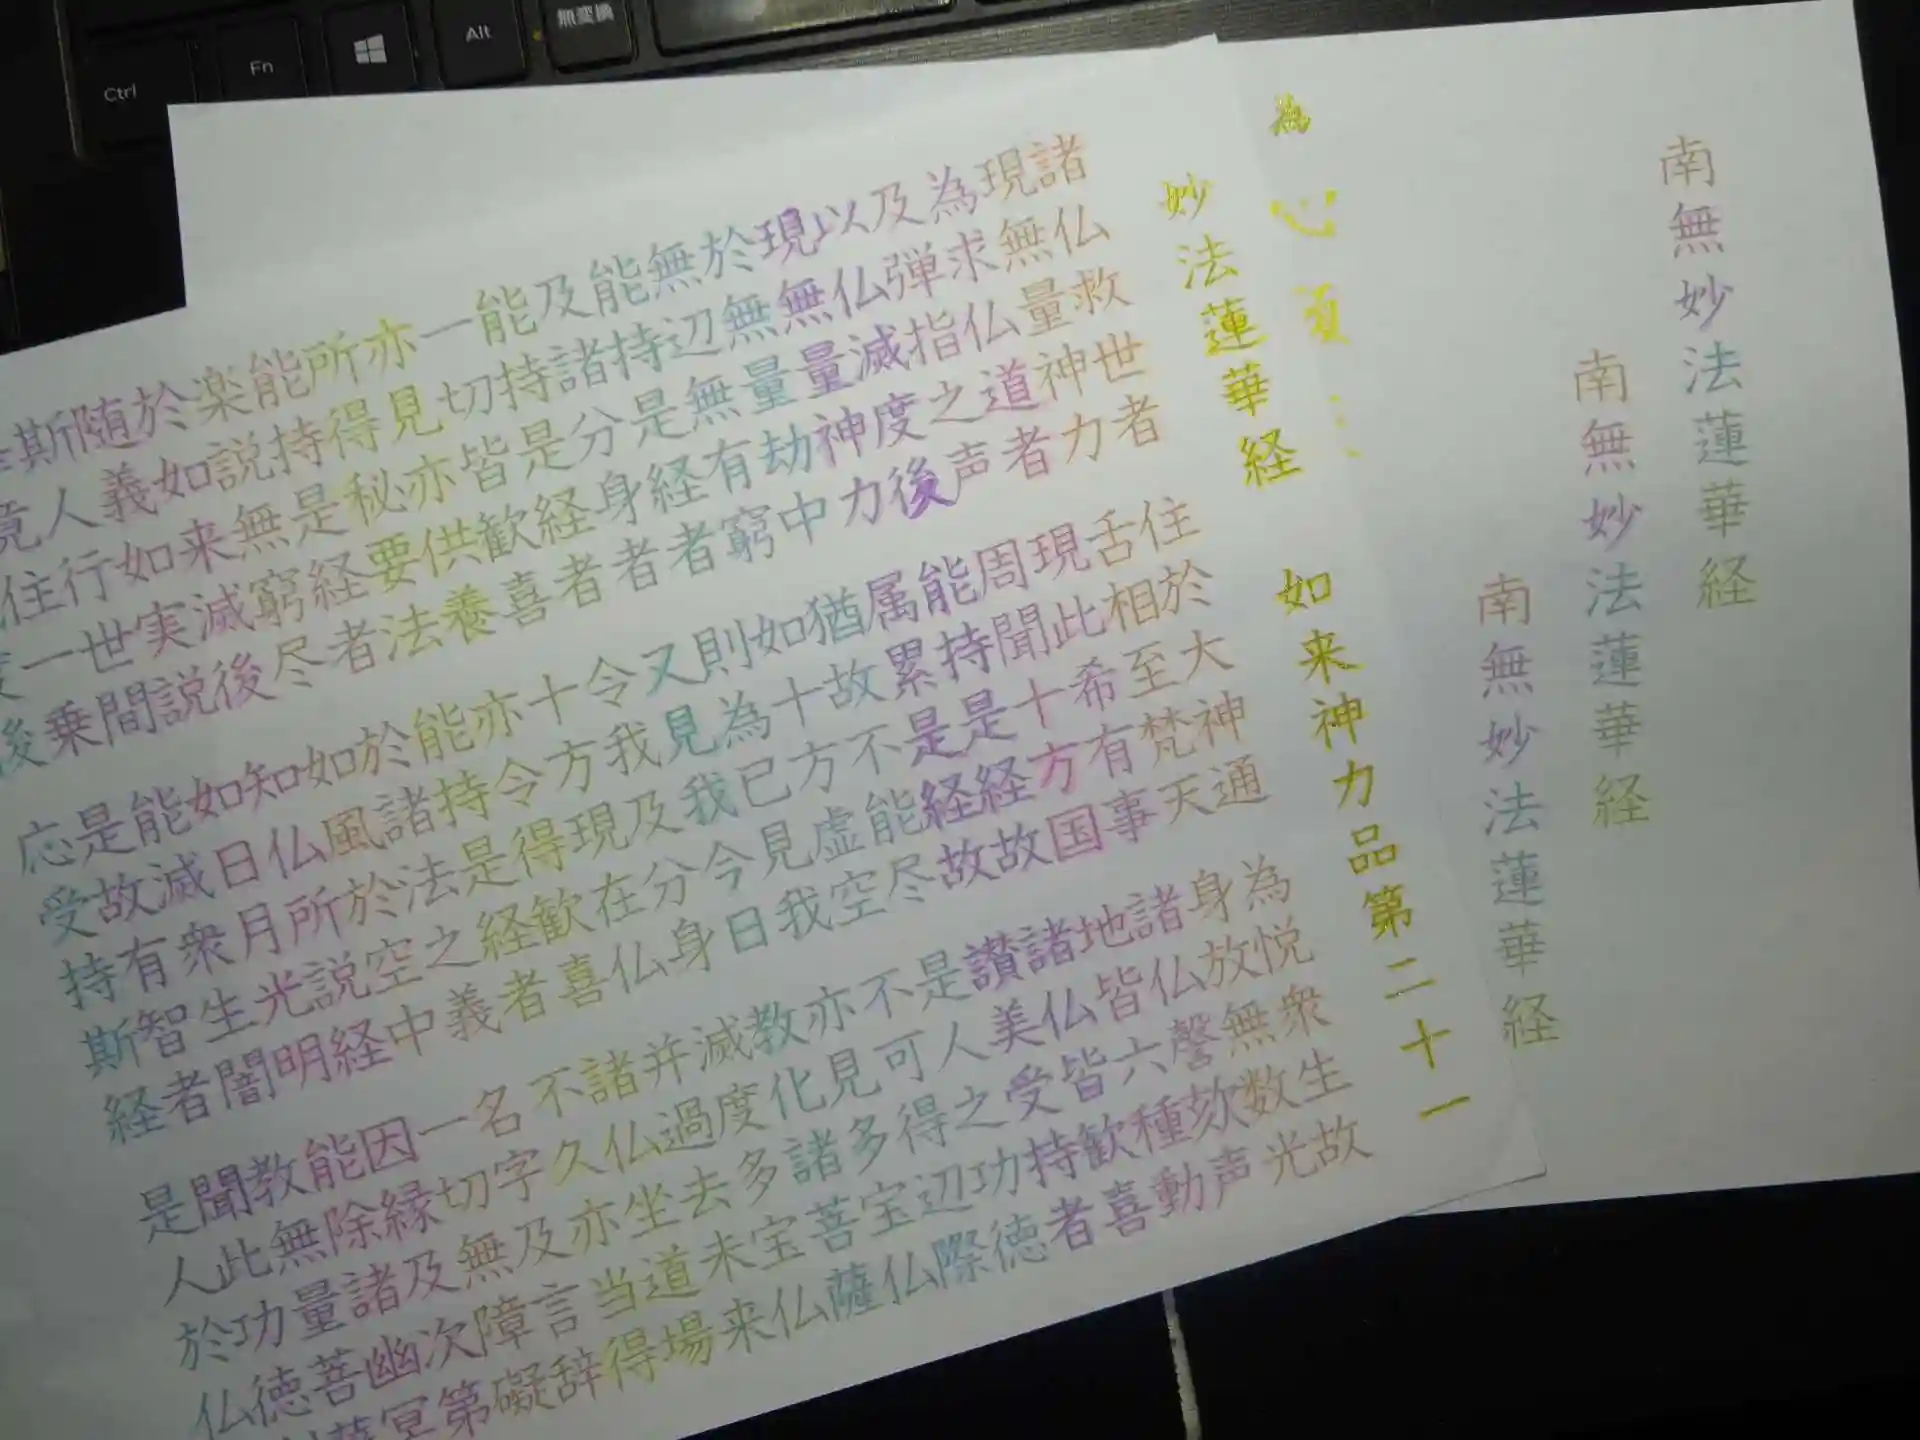 南無妙法蓮華経
南無妙法蓮華経
南無妙法蓮華経
為 心
妙法蓮華経 如来神力品第二十一
諸仏救世者 住於大神通 為悦衆生故
現無量神力 舌相至梵天 身放無数光
為求仏道者 現此希有事 諸仏謦欬声
及弾指之声 周聞十方国 地皆六種動
以仏滅度後 能持是経故 諸仏皆歓喜
現無量神力 属累是経故 讃美受持者
於無量劫中 猶故不能尽 是人之功徳
無辺無有窮 如十方虚空 不可得辺際
能持是経者 則為已見我 亦見多宝仏
及諸分身者 又見我今日 教化諸菩薩
能持是経者 令我及分身 滅度多宝仏
一切皆歓喜 十方現在仏 并過去未来
亦見亦供養 亦令得歓喜 諸仏坐道場
所得秘要法 能持是経者 不久亦当得
能持是経者 於諸法之義 名字及言辞
楽説無窮尽 如風於空中 一切無障礙
於如来滅後 知仏所説経 因縁及次第
随義如実説 如日月光明 能除諸幽冥
斯人行世間 能滅衆生闇 教無量菩薩
竟住一乗 是故有智者 聞此功徳
度後 応受持斯経 是人於仏
Ctrl Fn Alt 無変換